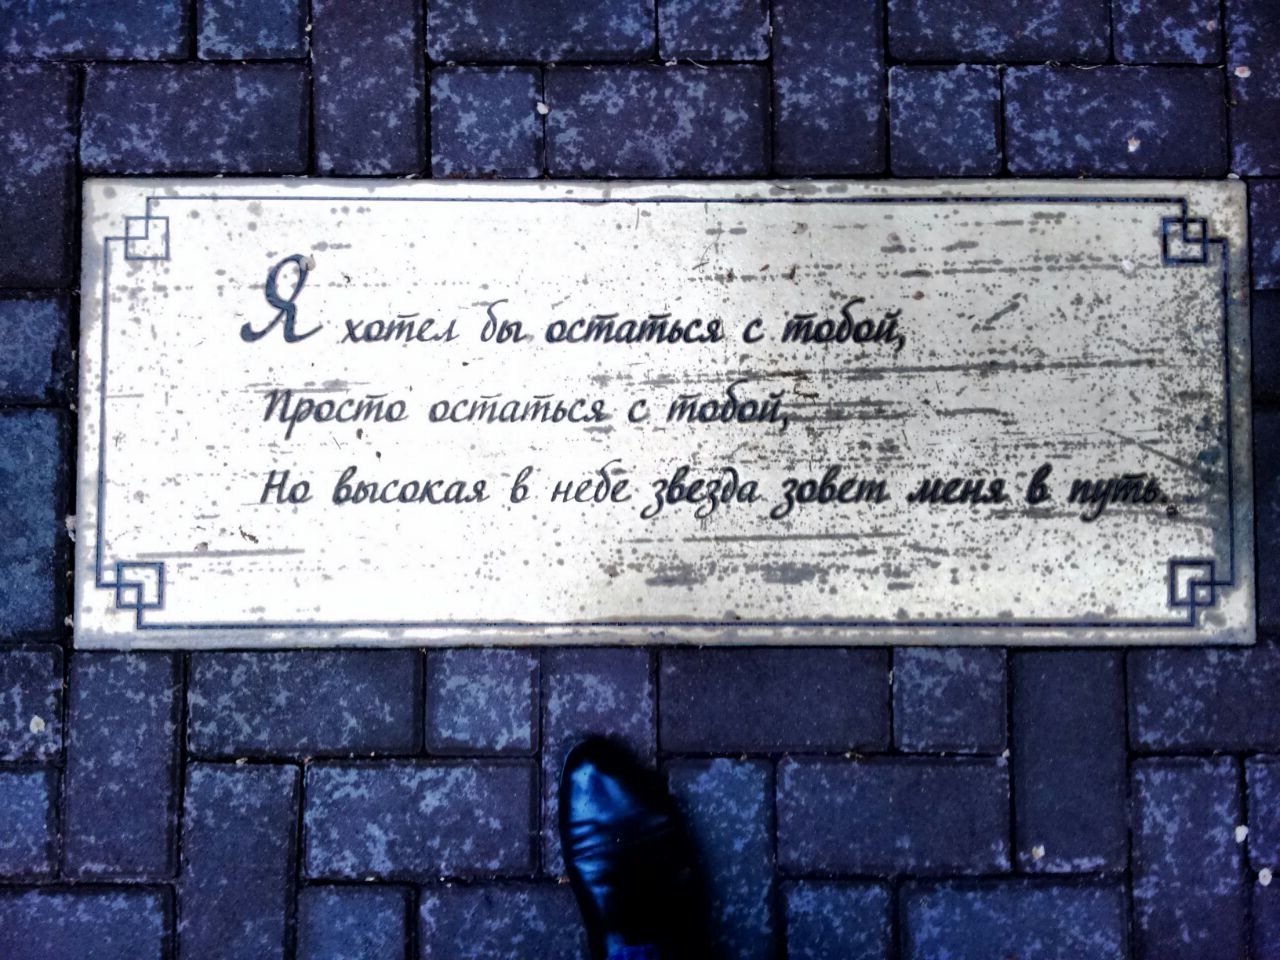 Я хотел бы остаться с тобой,
Просто остаться с тобой,
Но высокая в небе звезда зовет меня в путь.